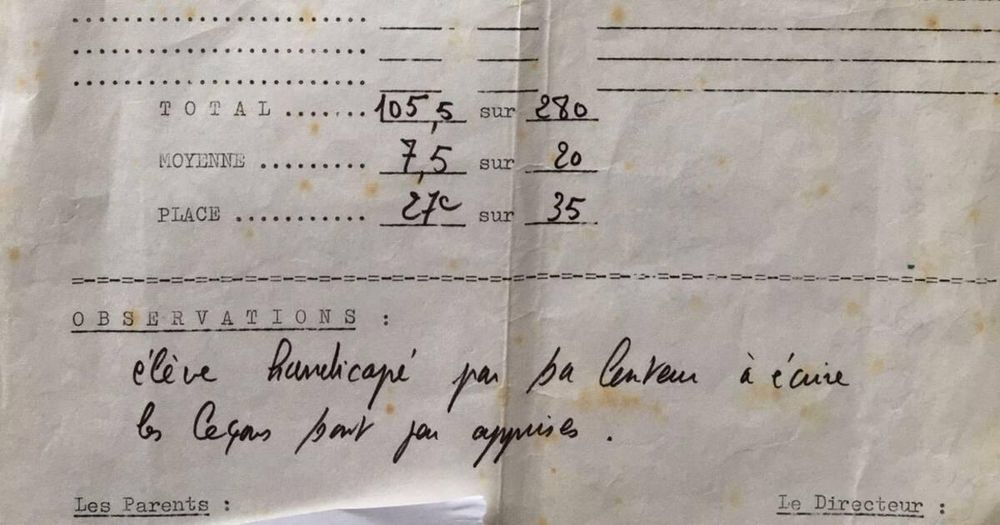 TOTAL ....... 105,5 sur 280
MOYENNE ......... 7,5 sur 20
PLACE ........... 27e sur 35
OBSERVATIONS :
élève handicapé par sa lenteur à écrire
les leçons sont peu apprises.
Les Parents : Le Directeur :